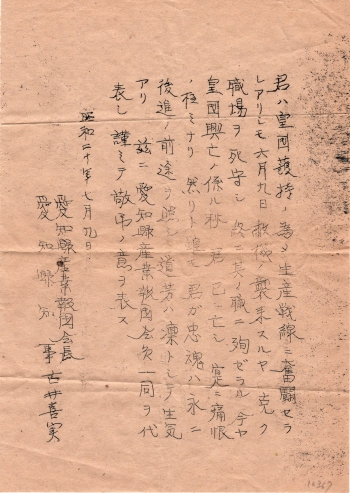 君ハ皇國護持ノ為メ生産戦線ニ奮闘セラ
レアリシモ六月九日敵機ノ襲来スルヤ克ク
職場ヲ死守シ 職ニ殉ゼラル
皇國興亡ノ係ル秋 君已ニ亡シ 寔ニ痛恨
ノ極ミナリ 然リト雖モ君ガ忠魂ハ永ニ
後進ノ前途ヲ 遺芳ハ凛トシテ生気
アリ 茲ニ愛知縣産業報國会員一同ヲ代
表シ謹ミテ敬弔ノ意ヲ表ス
昭和二十年七月九日
愛知縣産業報國会長
愛知縣知事古井喜実
10367